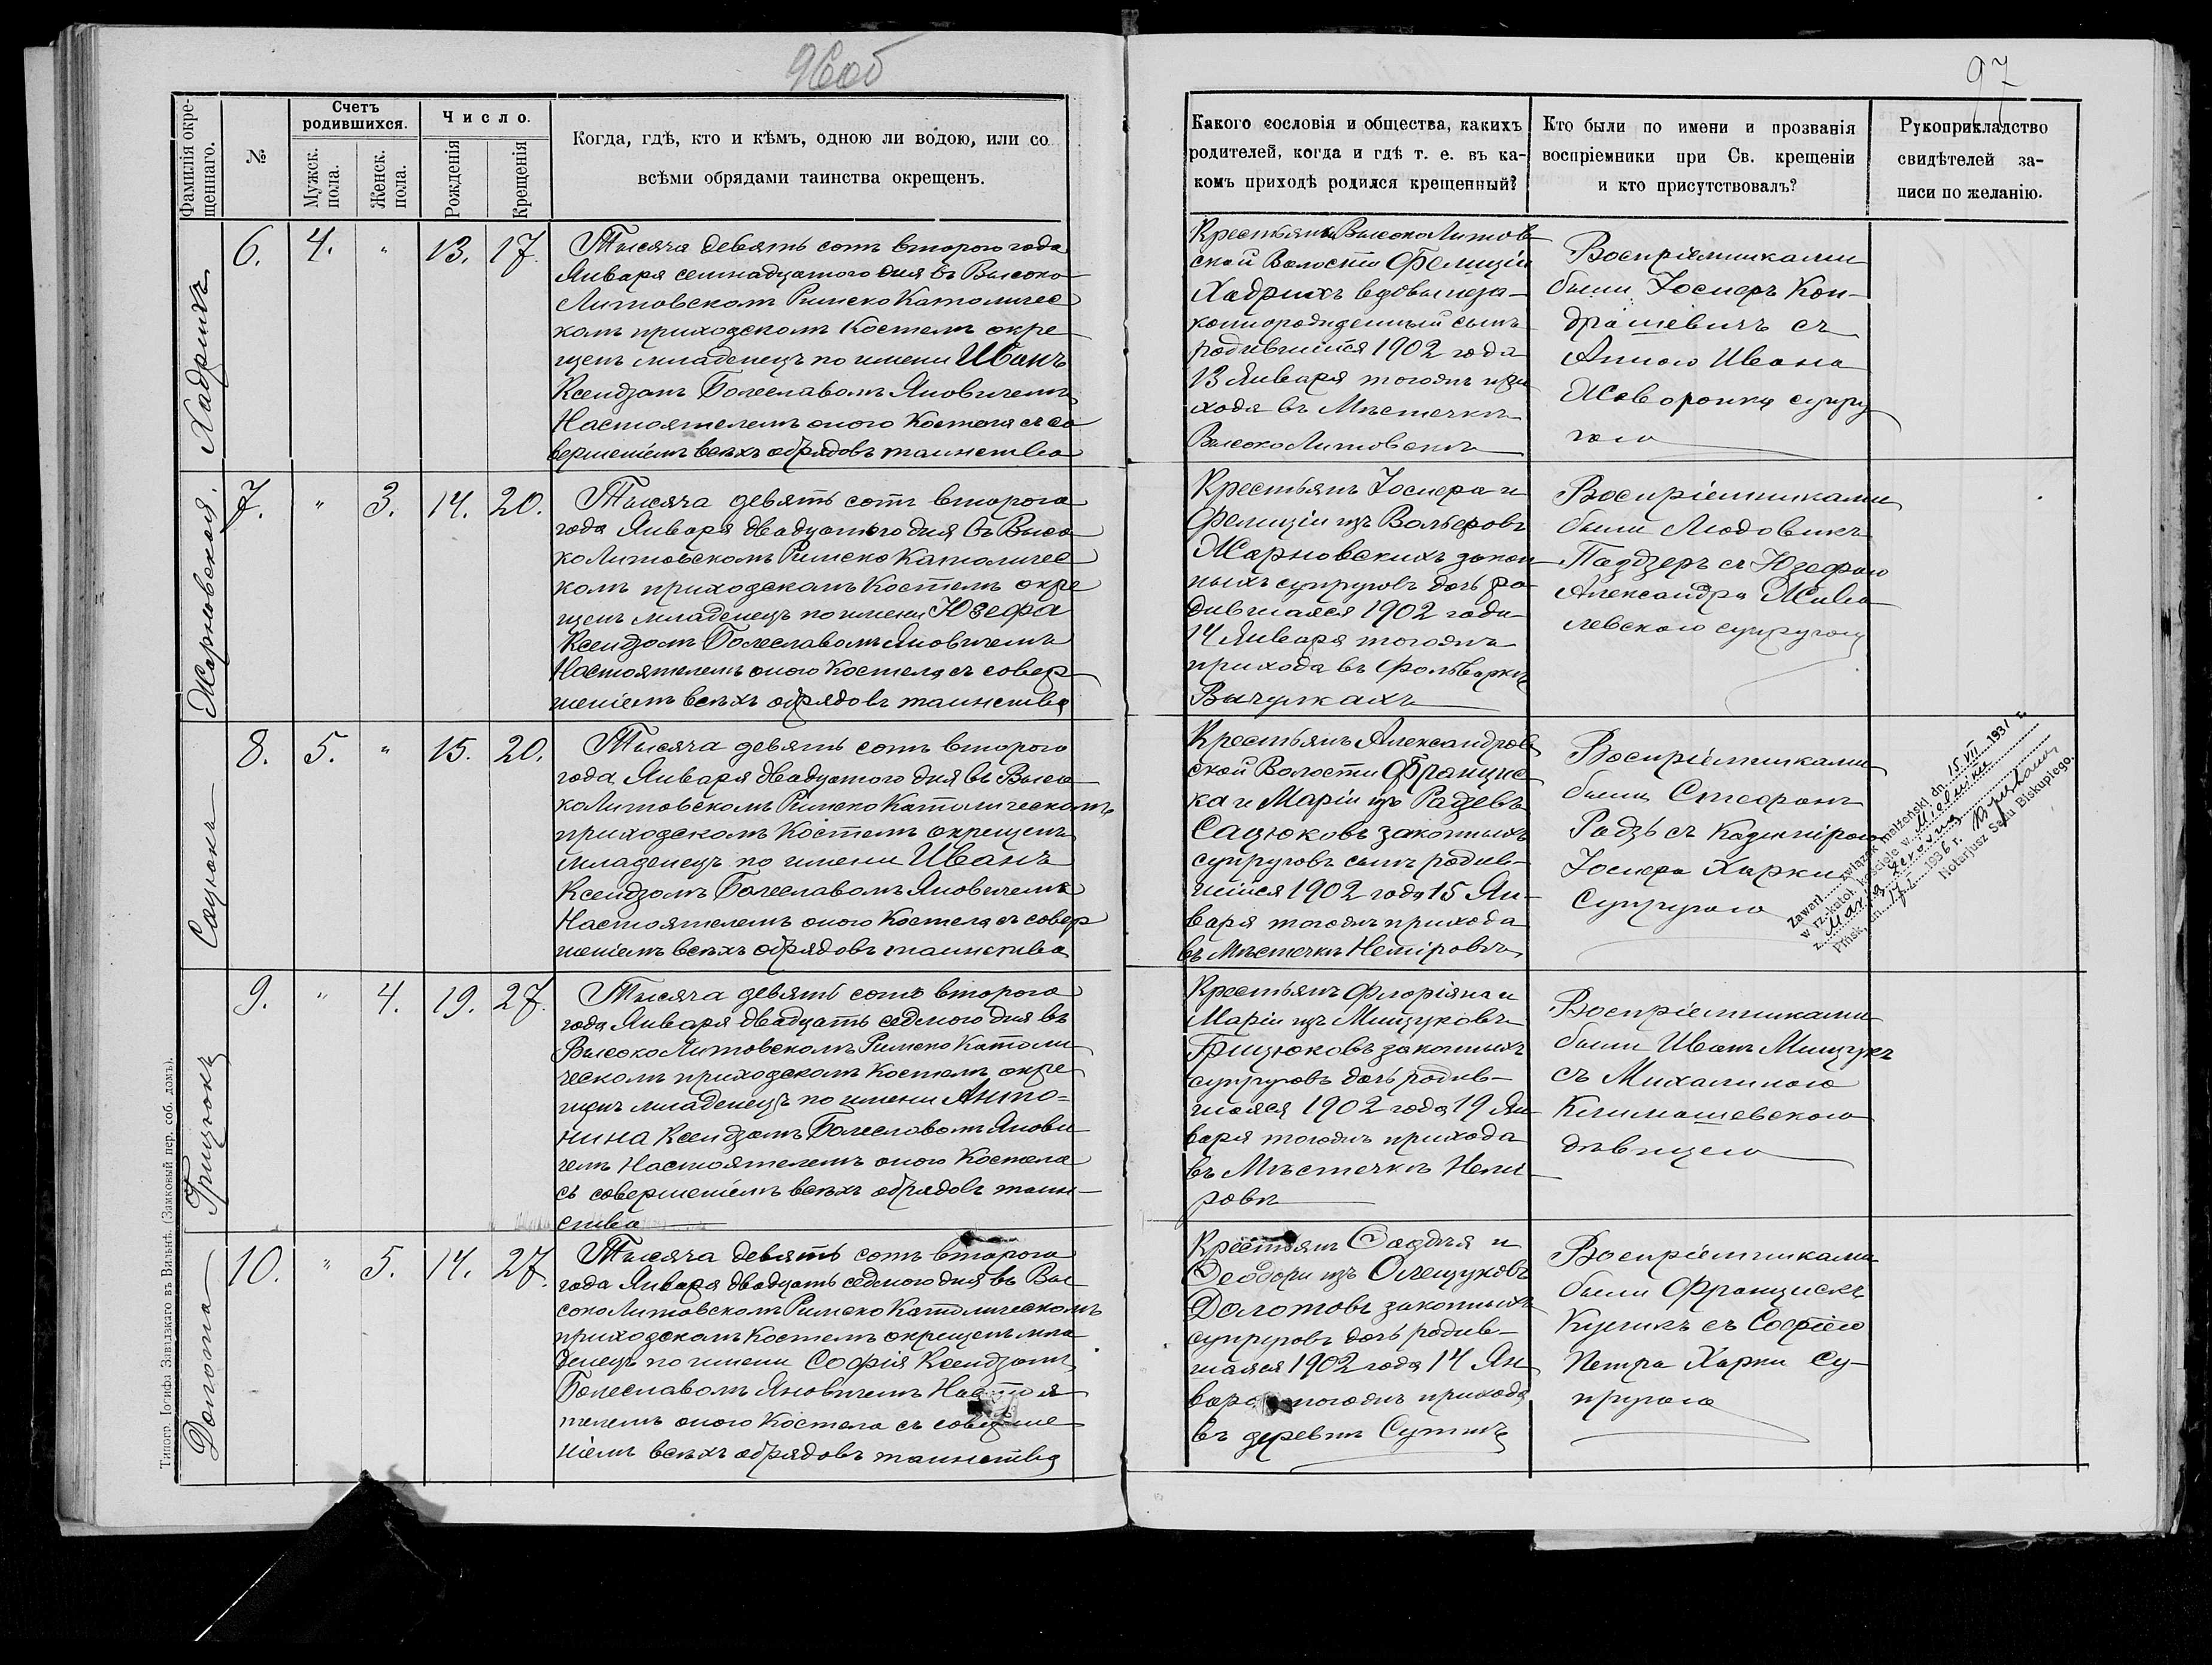 96об
97
Фамилія окре-
щеннаго.
№
Счетъ
родившихся.
Мужск.
пола.
Женск.
пола.
Число.
Рожденія
Крещенія
Когда, гдѣ, кто и кѣмъ, одною ли водою, или со
всѣми обрядами таинства окрещенъ.
Какого сословія и общества, какихъ
родителей, когда и гдѣ т. е. въ ка-
комъ приходѣ родился крещенный?
Кто были по имени и прозванія
воспріемники при Св. крещеніи
и кто присутствовалъ?
Рукоприкладство
свидѣтелей за-
писи по желанію.
Хадрикъ
6. 4. " 13. 17.
Тысяча девять сотъ второго года
Января семнадцатого дня въ Высоко
Литовскомъ Римско Католичес
комъ приходскомъ Костелѣ окре
щенъ младенецъ по имени Иванъ
Ксендзомъ Болеславомъ Яновичемъ
Настоятелемъ оного Костела съ со
вершеніемъ всѣхъ обрядовъ таинства
Крестьянки ВысокоЛитов
ской Волости Фелиціи
вдовы неза-
коннорожденный сынъ
родившійся 1902 года
13 Января тогожъ при
хода въ Мѣстечкѣ
ВысокоЛитовскѣ
Воспріемниками
были Іосифъ Кон-
драшевичъ съ
Анною Ивана
Жаворонка супру
гою
Жарновская.
7. " 3. 14. 20.
Тысяча девять сотъ второго
года Января двадцатого дня въ Высо
коЛитовскомъ Римско Католичес
комъ приходскомъ Костелѣ окре
щенъ младенецъ по имени Юзефа
Ксендзомъ Болеславомъ Яновичемъ
Настоятелемъ оного Костела съ совер
шеніемъ всѣхъ обрядовъ таинства
Крестьянъ Іосифа и
Фелиціи изъ Вольфовъ
Жарновскихъ закон
ныхъ супруговъ дочь ро
дившаяся 1902 года
14 Января тогожъ
прихода въ фольваркѣ
Вычулкахъ
Воспріемниками
были Людовикъ
съ Юзефою
Александра
левскаго супругою
Сацюкъ
8. 5. " 15. 20.
Тысяча девять сотъ второго
года Января двадцатого дня въ Высо
коЛитовскомъ Римско Католическомъ
приходскомъ Костелѣ окрещенъ
младенецъ по имени Иванъ
Ксендзомъ Болеславомъ Яновичемъ
Настоятелемъ оного Костела съ совер
шеніемъ всѣхъ обрядовъ таинства
Крестьянъ Александров
ской Волости Францис
ка и Маріи изъ
Сацюковъ законныхъ
супруговъ сынъ родив-
шійся 1902 года 15 Ян-
варя тогожъ прихода
въ Мѣстечкѣ Немировѣ
Воспріемниками
были Стефанъ
Радзь съ Казимірою
Іосифа Харки
Супругою
Zawarł związek małżeński dn. 15 VII 1931 r.
w rz.-katol. kościele w Mielniku
z
Pińsk, dn. 17 I 1936 r.
Notarjusz Sądu Biskupiego.
Грицюкъ
9. " 4. 19. 27.
Тысяча девять сотъ второго
года Января двадцать седмого дня въ
Высоко Литовскомъ Римско Католи
ческомъ приходскомъ Костелѣ окре
щенъ младенецъ по имени Анто-
нина Ксендзомъ Болеславомъ Янови
чемъ Настоятелемъ оного Костела
съ совершеніемъ всѣхъ обрядовъ таин-
ства
Крестьянъ Флоріяна и
Маріи изъ Мищуковъ
Грицюковъ законныхъ
супруговъ дочь родив-
шаяся 1902 года 19 Ян
варя тогожъ прихода
въ Мѣстечкѣ Неми
ровѣ
Воспріемниками
были Иванъ Мищукъ
съ Михалиною
Климашевскою
дѣвицею
Долота
10. " 5. 14. 27.
Тысяча девять сотъ второго
года Января двадцать седмого дня въ Вы
соко Литовскомъ Римско Католическомъ
приходскомъ Костелѣ окрещенъ мла
денецъ по имени Софія Ксендзомъ
Болеславомъ Яновичемъ Настоя
телемъ оного Костела съ соверше
ніемъ всѣхъ обрядовъ таинства
Крестьянъ и
изъ Олещуковъ
Долотовъ законныхъ
супруговъ дочь родив-
шаяся 1902 года 14 Ян
варя тогожъ прихода
въ деревнѣ
Воспріемниками
были Францискъ
съ Софіею
Петра Харки Су-
пругою
Типогр. Іосифа Завадзкаго въ Вильнѣ. (Замковый пер. соб. домъ).